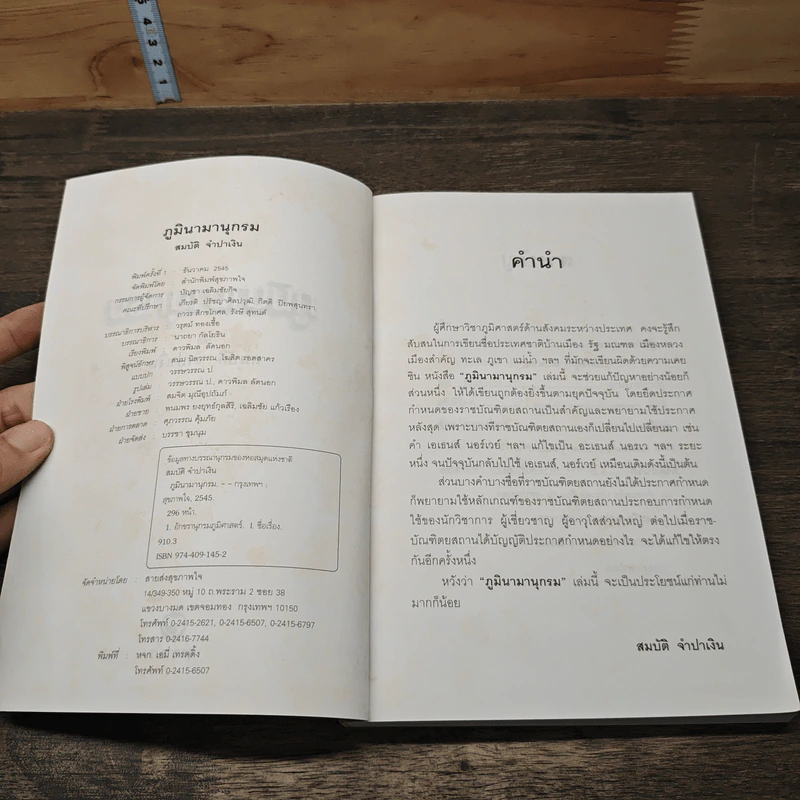 5
4
3
2
1
ภูมินามานุกรม
สมบัติ จำปาเงิน
พิมพ์ครั้งที่ 1 : ธันวาคม 2545
จัดพิมพ์โดย : สำนักพิมพ์สุขภาพใจ
กรรมการผู้จัดการ : บัญชา เฉลิมชัยกิจ
คณะที่ปรึกษา : เกียรติ ปรัชญาศิลปวุฒิ, กิตติ ปิยพสุนทรา,
ถาวร สิกขโกศล, รังษี สุทนต์
บรรณาธิการบริหาร : วรุตม์ ทองเชื้อ
บรรณาธิการ : นาถยา กัลโยธิน
เรียงพิมพ์ : ดาวพิมล ลัดนอก
พิสูจน์อักษร : สนม นิลวรรณ, โฆสิต รอดสาคร
แบบปก : วรรษวรรณ ป.
รูปเล่ม : วรรษวรรณ ป., ดาวพิมล ลัดนอก
ฝ่ายโรงพิมพ์ : สมจิต มุณีอุปถัมภ์
ฝ่ายขาย : พนมพร ยงยุทธ์กุลสิริ, เฉลิมชัย แก้วเรือง
ฝ่ายการตลาด : ศุภวรรณ คุ้มภัย
ฝ่ายจัดส่ง : บรรชา ชุมนุม
ข้อมูลทางบรรณานุกรมของหอสมุดแห่งชาติ
สมบัติ จำปาเงิน
ภูมินามานุกรม. - - กรุงเทพฯ :
สุขภาพใจ, 2545.
296 หน้า.
1. อักขรานุกรมภูมิศาสตร์. I. ชื่อเรื่อง.
910.3
ISBN 974-409-145-2
จัดจำหน่ายโดย : สายส่งสุขภาพใจ
14/349-350 หมู่ 10 ถ.พระราม 2 ซอย 38
แขวงบางมด เขตจอมทอง กรุงเทพฯ 10150
โทรศัพท์ 0-2415-2621, 0-2415-6507, 0-2415-6797
โทรสาร 0-2416-7744
พิมพ์ที่ : หจก. เอมี่ เทรดดิ้ง
โทรศัพท์ 0-2415-6507
คำนำ
ผู้ศึกษาวิชาภูมิศาสตร์ด้านสังคมระหว่างประเทศ คงจะรู้สึก
สับสนในการเขียนชื่อประเทศชาติบ้านเมือง รัฐ มณฑล เมืองหลวง
เมืองสำคัญ ทะเล ภูเขา แม่น้ำ ฯลฯ ที่มักจะเขียนผิดด้วยความเคย
ชิน หนังสือ "ภูมินามานุกรม" เล่มนี้ จะช่วยแก้ปัญหาอย่างน้อยก็
ส่วนหนึ่ง ให้ได้เขียนถูกต้องยิ่งขึ้นตามยุคปัจจุบัน โดยยึดประกาศ
กำหนดของราชบัณฑิตยสถานเป็นสำคัญและพยายามใช้ประกาศ
หลังสุด เพราะบางทีราชบัณฑิตยสถานเองก็เปลี่ยนไปเปลี่ยนมา เช่น
คำ เอเธนส์ นอร์เวย์ ฯลฯ แก้ไขเป็น อะเธนส์ นอรเว ฯลฯ ระยะ
หนึ่ง จนปัจจุบันกลับไปใช้ เอเธนส์, นอร์เวย์ เหมือนเดิมดังนี้เป็นต้น
ส่วนบางคำบางชื่อที่ราชบัณฑิตยสถานยังไม่ได้ประกาศกำหนด
ก็พยายามใช้หลักเกณฑ์ของราชบัณฑิตยสถานประกอบการกำหนด
ใช้ของนักวิชาการ ผู้เชี่ยวชาญ ผู้อาวุโสส่วนใหญ่ ต่อไปเมื่อราช-
บัณฑิตยสถานได้บัญญัติประกาศกำหนดอย่างไร จะได้แก้ไขให้ตรง
กันอีกครั้งหนึ่ง
หวังว่า "ภูมินามานุกรม" เล่มนี้ จะเป็นประโยชน์แก่ท่านไม่
มากก็น้อย
สมบัติ จำปาเงิน